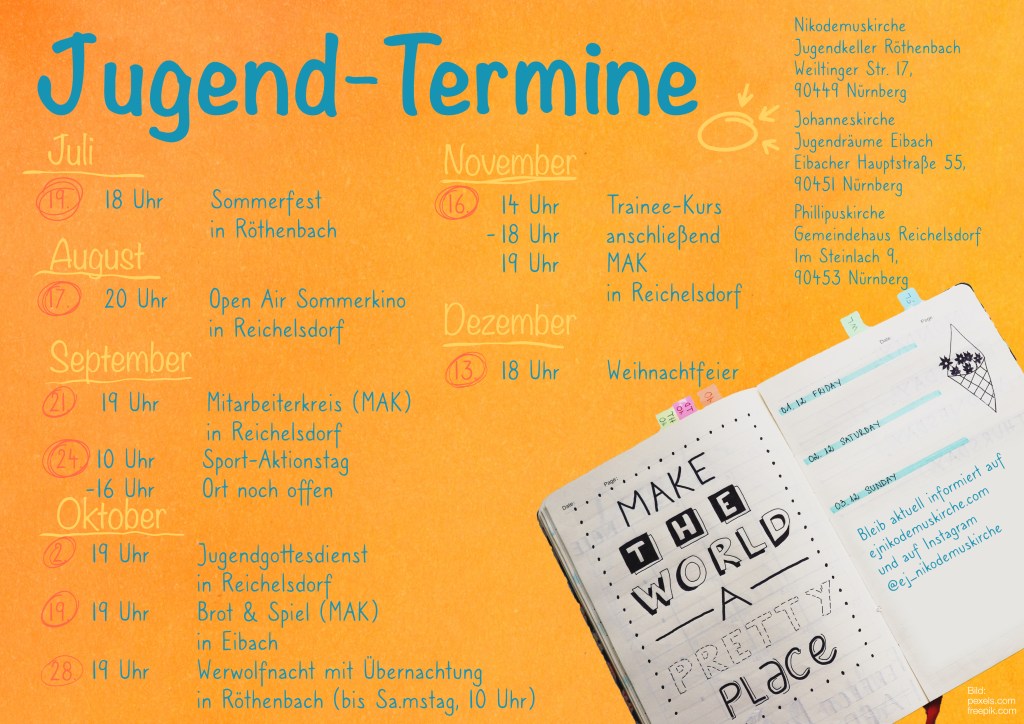 Jugend-Termine
Juli
19. 18 Uhr Sommerfest
in Röthenbach
August
17. 20 Uhr Open Air Sommerkino
in Reichelsdorf
September
21 19 Uhr Mitarbeiterkreis (MAK)
in Reichelsdorf
24. 10 Uhr Sport-Aktionstag
-16 Uhr Ort noch offen
Oktober
2. 19 Uhr Jugendgottesdienst
in Reichelsdorf
19. 19 Uhr Brot & Spiel (MAK)
in Eibach
28. 19 Uhr Werwolfnacht mit Übernachtung
in Röthenbach (bis Sa.mstag, 10 Uhr)
November
16. 14 Uhr Trainee-Kurs
-18 Uhr anschließend
19 Uhr MAK
in Reichelsdorf
Dezember
13. 18 Uhr Weihnachtfeier
Nikodemuskirche
Jugendkeller Röthenbach
Weiltinger Str. 17,
90449 Nürnberg
Johanneskirche
Jugendräume Eibach
Eibacher Hauptstraße 55,
90451 Nürnberg
Phillipuskirche
Gemeindehaus Reichelsdorf
Im Steinlach 9,
90453 Nürnberg
Date: Page:
MAKE
THE
WORLD
A
PRETTY
PLACE
Date: Page:
01. 12. FRIDAY
02. 12. SATURDAY
03. 12. SUNDAY
Bleib aktuell informiert auf
ejnikodemuskirche.com
und auf Instagram
@ej_nikodemuskirche
Bild:
pexels.com
freepik.com